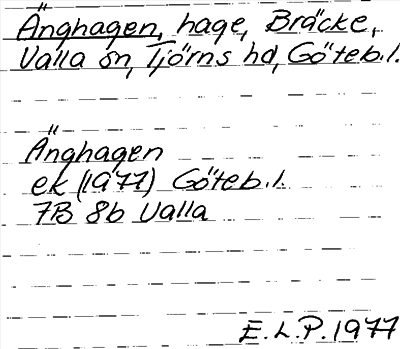 Änghagen, hage, Bräcke,
Valla sn, Tjörns hd, Göteb.l.
Änghagen
ek (1977) Göteb.l.
7B 8b Valla
E.L.P. 1977